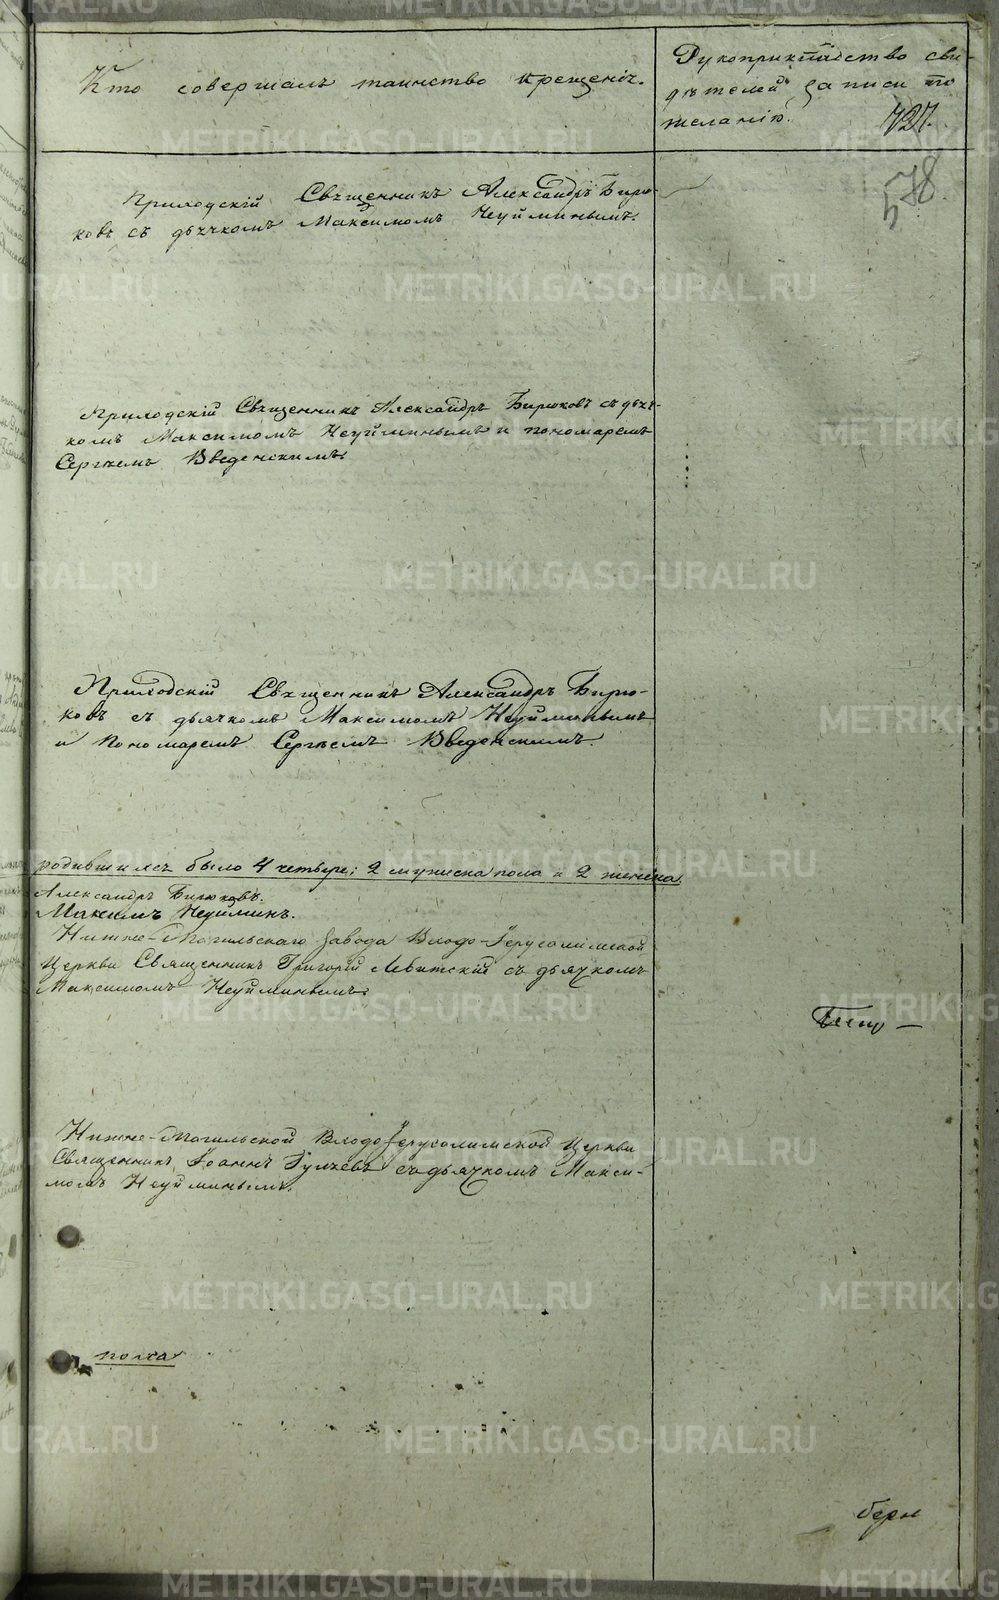 Кто совершалъ таинство крещенія.
Рукоприкладство сви-
дѣтелей записи по
желанію.
727.
578
Приходскій Священникъ Александръ Бирю-
ковъ съ дьячкомъ Максимомъ Неуйминымъ.
Приходскій Священникъ Александръ Бирюковъ съ дьяч-
комъ Максимомъ Неуйминымъ и пономаремъ
Сергѣемъ Введенскимъ.
Приходскій Священникъ Александръ Бирю-
ковъ съ дьячкомъ Максимомъ Неуйминымъ
и Пономаремъ Сергѣемъ Введенскимъ.
родившихся было 4 четверо; 2 мужеска пола и 2 женска
Александръ Бирюковъ.
Максимъ Неуйминъ.
Нижне-Тагильскаго Завода Входо-Іерусалимской
Церкви Священникъ Григорій Левитскій съ дьячкомъ
Максимомъ Неуйминымъ.
Нижне-Тагильской Входо-Іерусалимской Церкви
Священникъ Іоаннъ съ дьячкомъ Макси-
момъ Неуйминымъ.
пола
METRIKI.GASO-URAL.RU